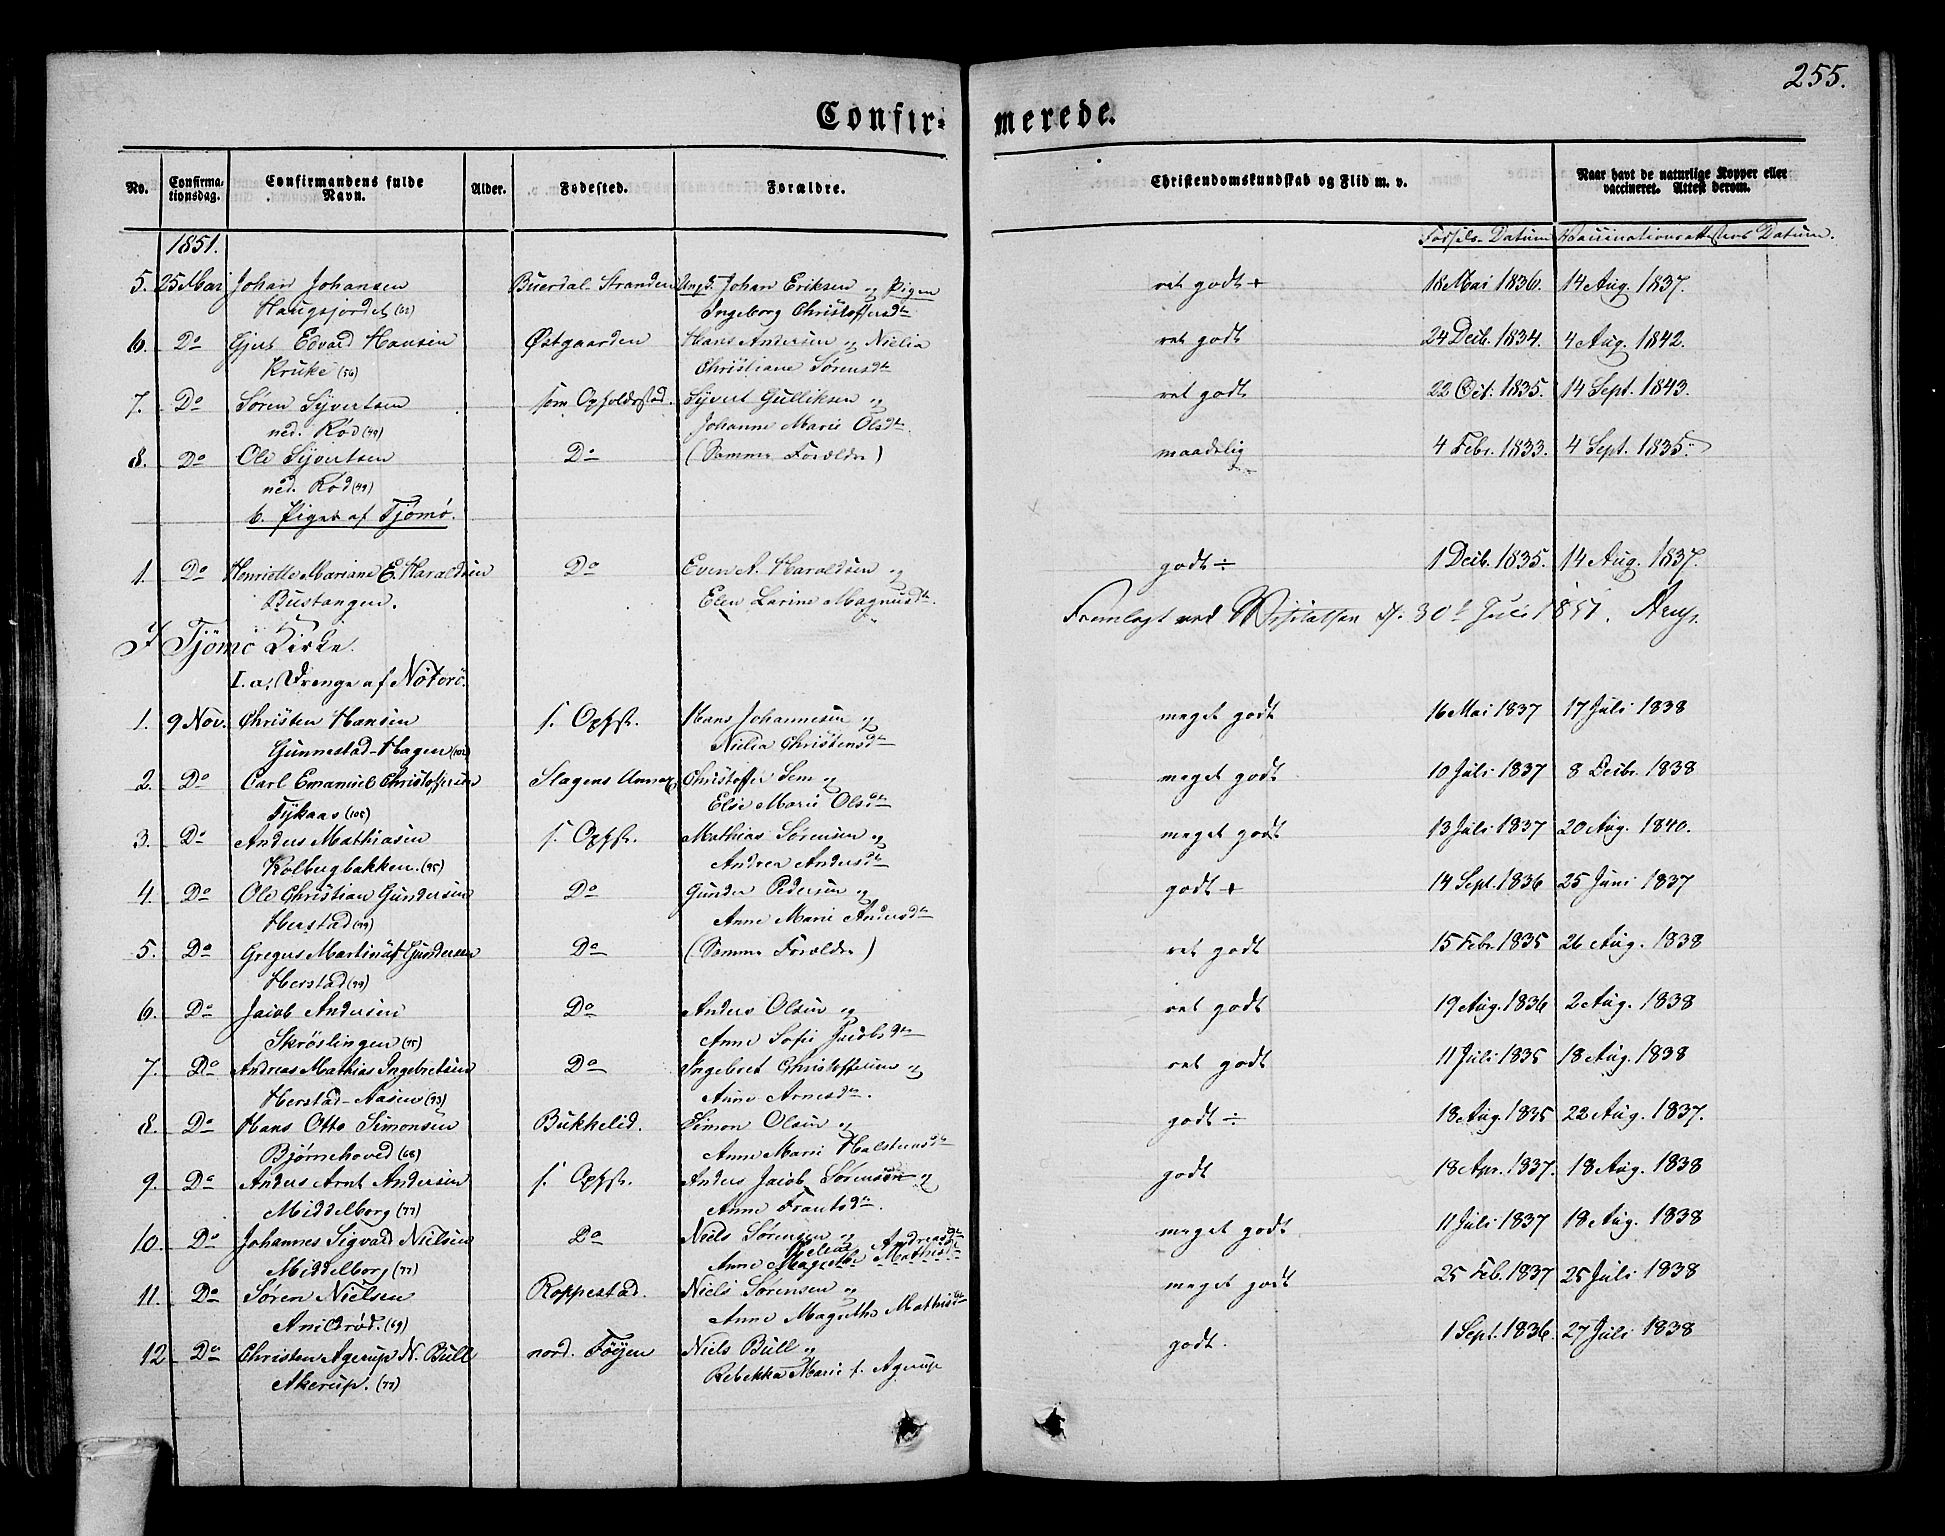 255.
Confir- merede.
No. Confirmationsdag. Confirmandens fulde Navn. Alder. Fødested. Forældre. Christendomskundskab og Flid m. v. Naar havt de naturlige Kopper eller vaccineret. Attest derom.
1851. Fødsels-Datum Vaccinationsattestens Datum.
5. 25 Mai Johan Johansen Buerdal-Stranden Ungk. Johan Eriksen og Pigen ret godt + 18 Mai 1836. 14 Aug. 1837.
Haugsjordet (62) Ingeborg Christoffersdtr
6. Do Gjert Edvard Hansen Østgaarden Hans Andersen og Nielia ret godt 24 Decb. 1834. 4 Aug. 1842.
Kruke (56) Christiane Sørensdtr
7. Do Søren Syvertsen som Opholdsstad. Syvert Gulliksen og ret godt 22 Oct. 1835. 14 Sept. 1843.
ned. Rød (49) Johanne Marie Olsdtr.
8. Do Ole Syvertsen Do (Samme Forældre) maadelig 4 Febr. 1833. 4 Sept. 1835.
ned. Rød (49)
b. Piger af Tjømø.
1. Do Henriette Mariane E. Haraldsen Do Even A. Haraldsen og godt ÷ 1 Decb. 1835. 14 Aug. 1837.
Bustangen. Elen Larine Magnusdtr.
Fremlagt ved Visitatsen d. 30te Juli 1851. Arup.
I Tjømø Kirke.
I. a, Drenge af Nøterø.
1. 9 Nov. Christen Hansen s. Opfst. Hans Johannesen og meget godt 16 Mai 1837 17 Juli 1838
Gunnestad-Hagen (102) Nielia Christensdtr
2. Do Carl Emanuel Christoffersen Slagens Annex Christoffer Sem og meget godt 10 Juli 1837 8 Decbr. 1838
Tykaas (105) Else Marie Olsdtr
3. Do Anders Mathiasen s. Opfst. Mathias Sørensen og meget godt 13 Juli 1837 20 Aug. 1840.
Kolbergbakken. (95) Andrea Andersdtr
4. Do Ole Christian Gundersen Do Gunder Pedersen og godt + 14 Sept. 1836 25 Juni 1837
Herstad (99) Anne Marie Andersdtr
5. Do Gregers Martinus Gundersen Do (Samme Forældre) ret godt 15 Febr. 1835 26 Aug. 1838
Herstad (99)
6. Do Jacob Andersen Do Anders Olsen og ret godt 19 Aug. 1836 2 Aug. 1838
Skrøslingen (95) Anne Sofie Jacobsdtr
7. Do Andreas Mathias Ingebretsen Do Ingebret Christoffersen og ret godt 11 Juli 1835 18 Aug. 1838
Herstad-Aasen (93) Anne Arnesdtr.
8. Do Hans Otto Simonsen Bukkelid. Simon Olsen og godt ÷ 18 Aug. 1835 22 Aug. 1837.
Bjørnehoved (68) Anne Marie Halstensdtr
9. Do Anders Arnt Andersen s. Opfst. Anders Jacob Sørensen og godt 18 Apr. 1837. 18 Aug. 1838
Middelborg (77) Anne Frantsdtr.
10. Do Johannes Sigvard Nielsen Do Niels Sørensen og meget godt 11 Juli 1837 18 Aug. 1838
Middelborg (77) Anne Magrethe Mathisdtr Helene Andreasdtr
11. Do Søren Nielsen Roppestad. Niels Sørensen og meget godt 25 Feb. 1837 25 Juli 1838
Anildrød. (69) Anne Magrethe Mathisdtr
12 Do Christen Agerup N. Bull nord. Føyen Niels Bull og godt. 1 Sept. 1836. 27 Juli 1838
Akerup. (77) Rebekka Marie f. Agerup